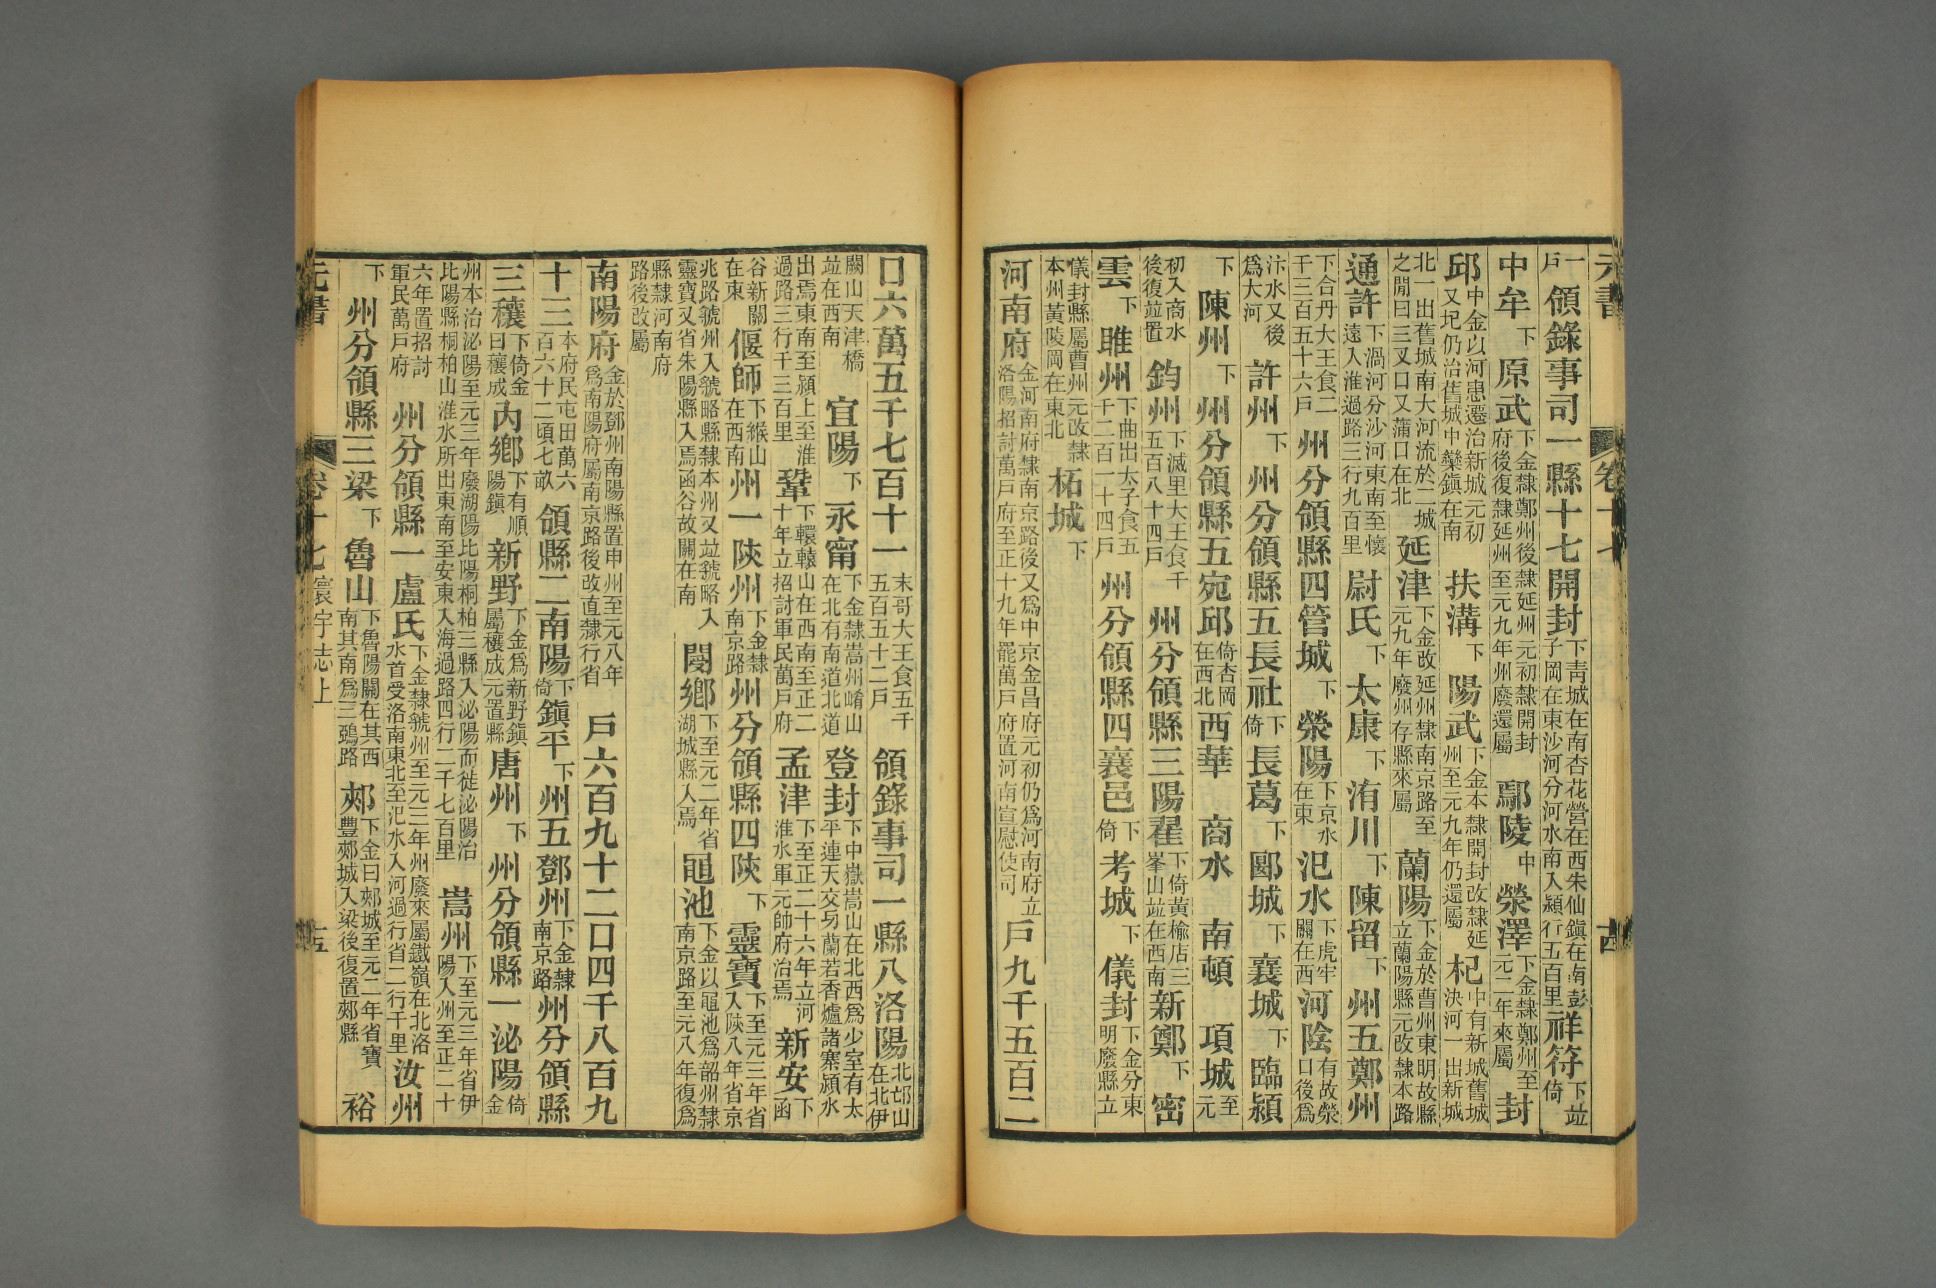 元書 卷十七 十四
一戶領錄事司一縣十七開封下靑城在南杏花營在西朱仙鎭在南彭子岡在東沙河分河水南入潁行五百里祥符下竝倚
中牟下原武下金隸鄭州後隸延州元初隸開封府後復隸延州至元九年州廢還屬鄢陵中滎澤下金隸鄭州至元二年來屬封
邱中金以河患遷治新城元初又圮仍治舊城中欒鎭在南扶溝下陽武下金本隸開封改隸延州至元九年仍還屬杞中有新城舊城決河一出新城
北一出舊城南大河流於二城之閒曰三叉口又蒲口在北延津下金改延州隸南京路至元九年廢州存縣來屬蘭陽下金於曹州東明故縣立蘭陽縣元改隸本路
通許下渦河分沙河東南至懷遠入淮過路三行九百里尉氏下太康下洧川下陳留下州五鄭州
下合丹大王食二千三百五十六戶州分領縣四管城下滎陽下京水在東汜水下虎牢關在西河陰有故滎口後爲
汴水又後爲大河許州下州分領縣五長社下倚長葛下郾城下襄城下臨潁
下陳州下州分領縣五宛邱倚杏岡在西北西華商水南頓項城至元
初入商水後復竝置鈞州下滅里大王食千五百八十四戶州分領縣三陽翟下倚黃榆店三峯山竝在西南新鄭下密
雲下睢州下曲出太子食五千二百一十四戶州分領縣四襄邑下倚考城下儀封下金分東明廢縣立
儀封縣屬曹州元改隸本州黃陵岡在東北柘城下
河南府金河南府隸南京路後又爲中京金昌府元初仍爲河南府立洛陽招討萬戶府至正十九年罷萬戶府置河南宣慰使司戶九千五百二
口六萬五千七百十一末哥大王食五千五百五十二戶領錄事司一縣八洛陽北邙山在北伊
闕山天津橋竝在西南宜陽下永甯下金隸嵩州崤山在北有南道北道登封下中嶽嵩山在北西爲少室有太平連天交易蘭若香爐諸寨潁水
出焉東南至潁上至淮過路三行千三百里鞏下轘轅山在西南至正二十年立招討軍民萬戶府孟津下至正二十六年立河淮水軍元帥府治焉新安下函
谷新關在東偃師下緱山在西南州一陝州下金隸南京路州分領縣四陝下靈寶下至元三年省入陝八年省京
兆路虢州入虢略縣隸本州又竝虢略入靈寶又省朱陽縣入焉函谷故關在南閿鄉下至元二年省湖城縣入焉黽池下金以黽池爲韶州隸南京路至元八年復爲
縣隸河南府路後改屬
南陽府金於鄧州南陽縣置申州至元八年爲南陽府屬南京路後改直隸行省戶六百九十二口四千八百九
十三本府民屯田萬六百六十二頃七畝領縣二南陽下倚鎭平下州五鄧州下金隸南京路州分領縣
三穰下倚金曰穰成內鄉下有順陽鎭新野下金爲新野鎭屬穰成元置縣唐州下州分領縣一泌陽倚金
州本治泌陽至元三年廢湖陽比陽桐柏三縣入泌陽而徙泌陽治比陽縣桐柏山淮水所出東南至安東入海過路四行二千七百里嵩州下至元三年省伊陽入州至正二十
六年置招討軍民萬戶府州分領縣一盧氏下金隸虢州至元二年州廢來屬鐵嶺在北洛水首受洛南東北至汜水入河過行省二行千里汝州
下州分領縣三梁下魯山下魯陽關在其西南其南爲三鵶路郟下金曰郟城至元二年省寶豐郟城入梁後復置郟縣裕
元書 卷十七 寰宇志上 十五